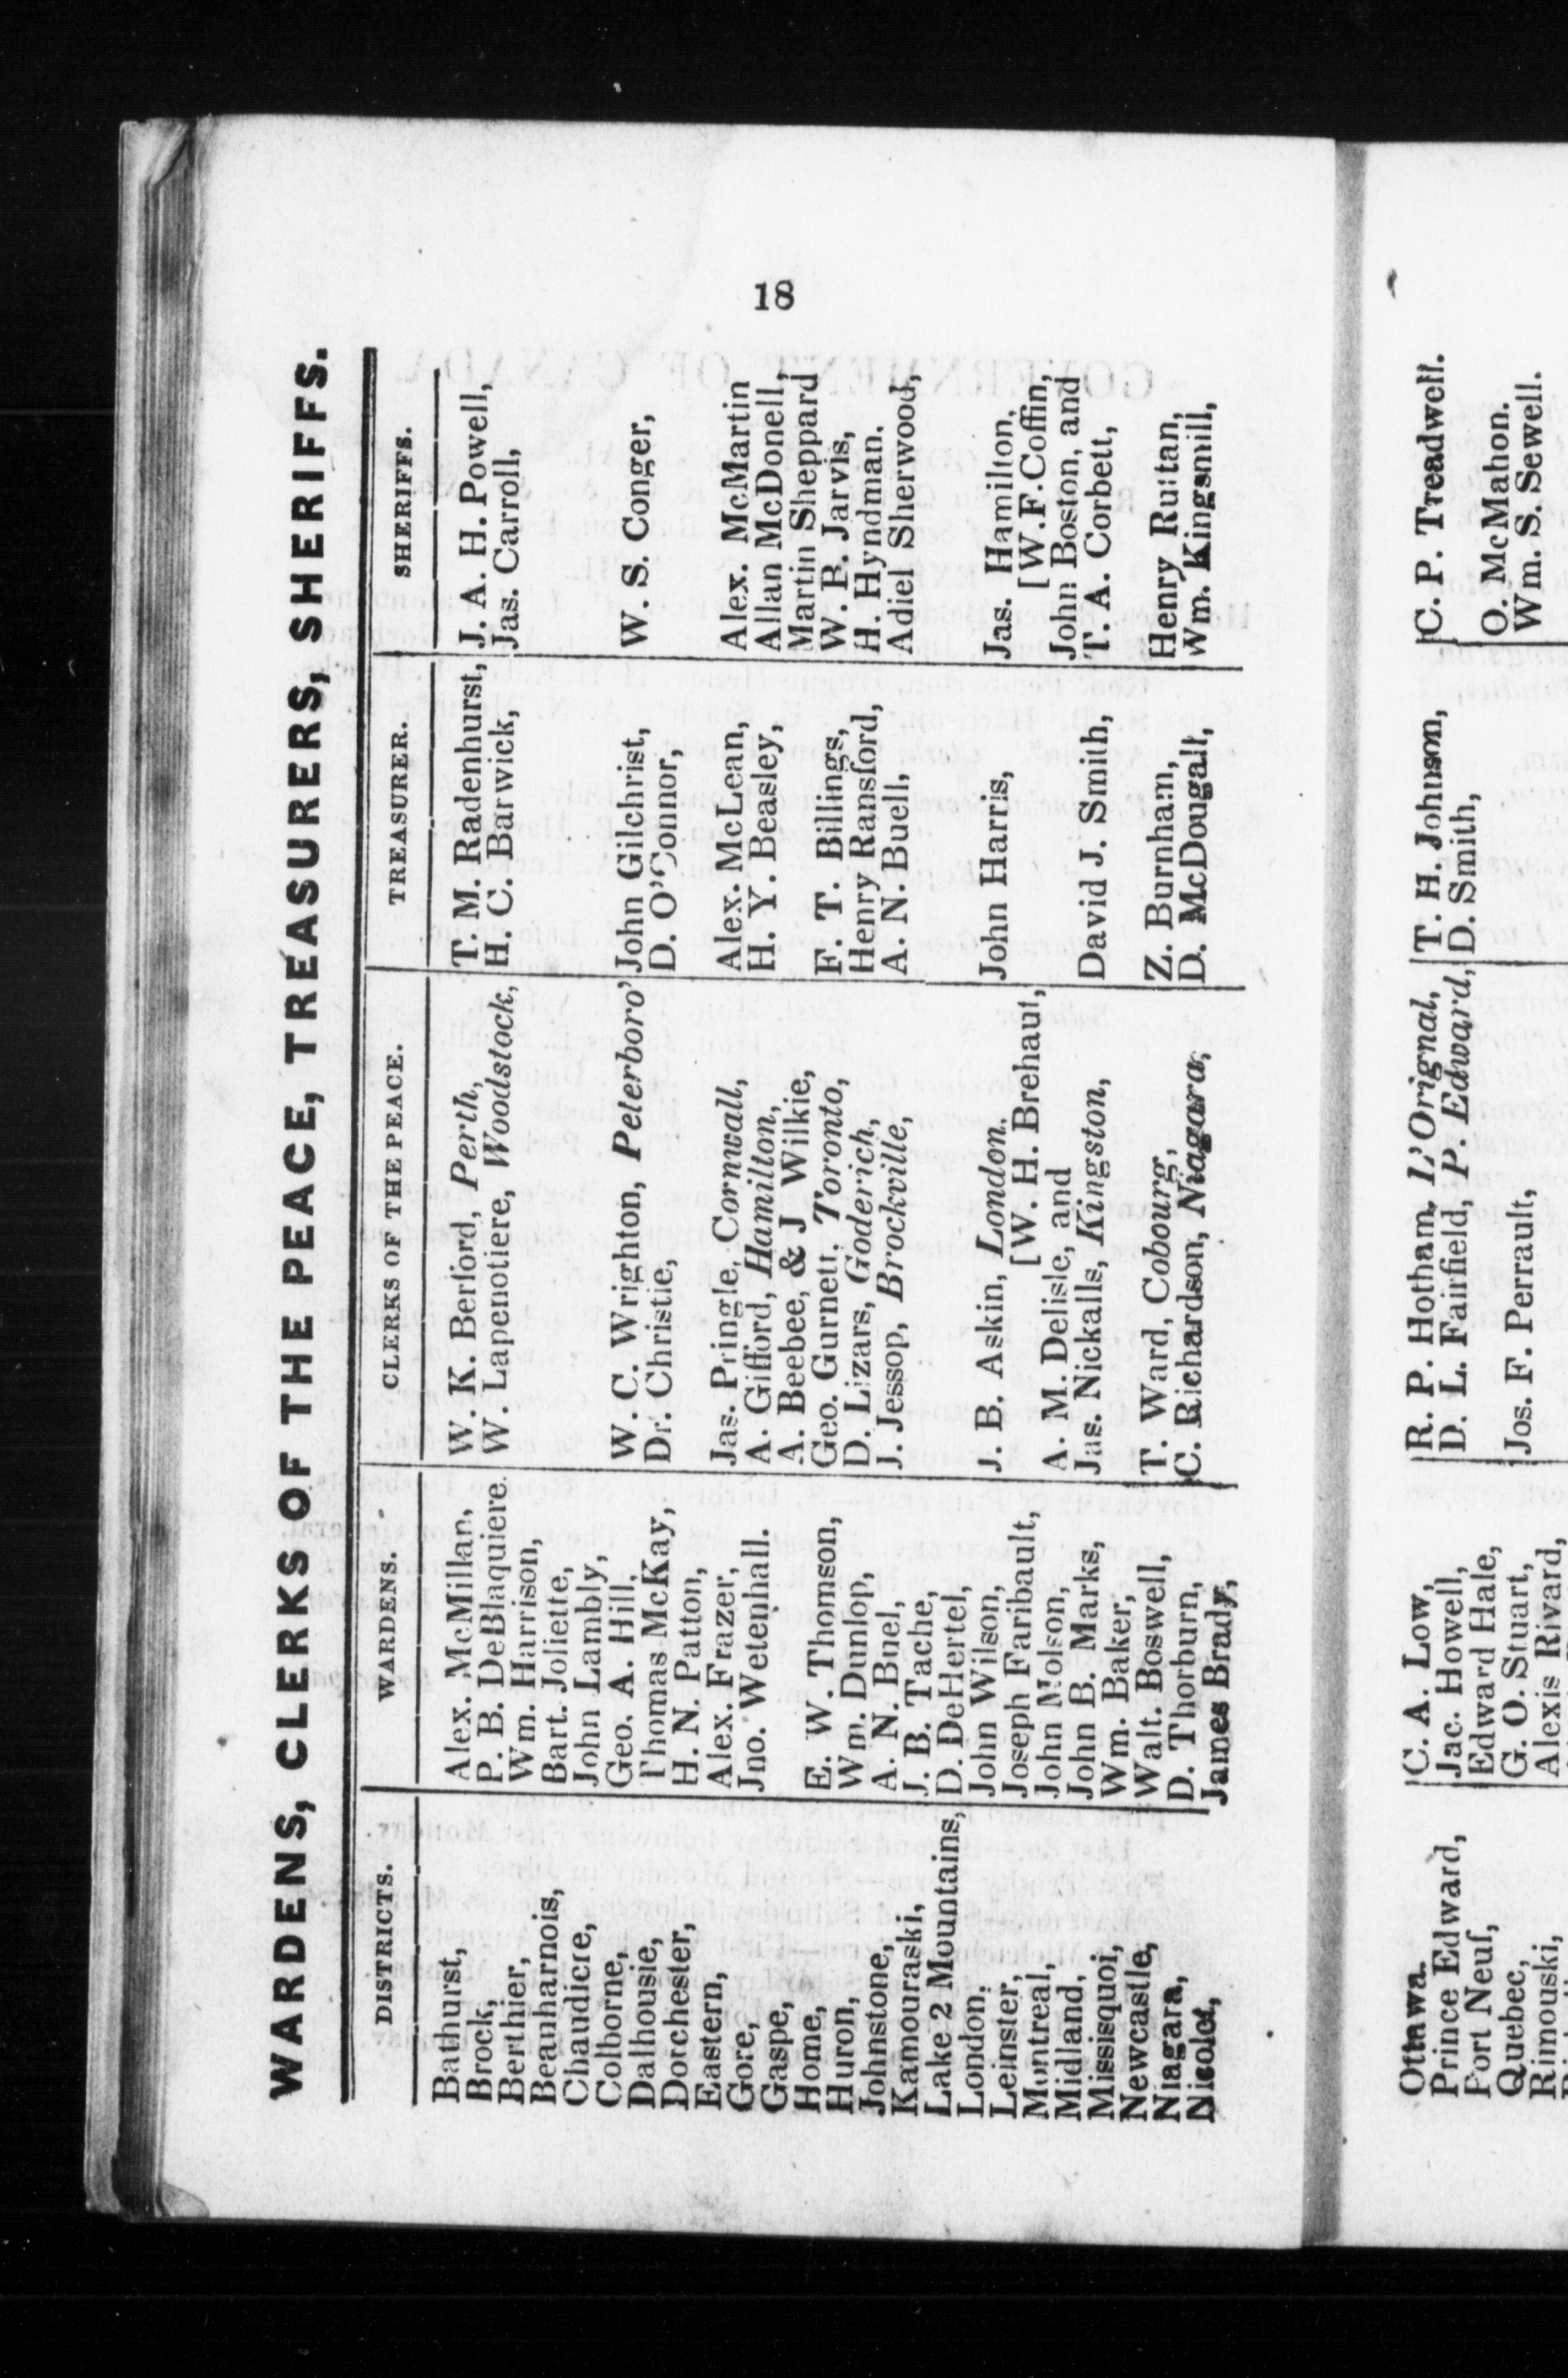 18
WARDENS, CLERKS OF THE PEACE, TREASURERS, SHERIFFS.
DISTRICTS. WARDENS. CLERKS OF THE PEACE. TREASURER. SHERIFFS.
Bathurst, Alex. McMillan, W. K. Berford, Perth, T. M. Radenhurst, J. A. H. Powell,
Brock, P. B. DeBlaquiere. W. Lapenotiere, Woodstock, H. C. Barwick, Jas. Carroll,
Berthier, Wm. Harrison,
Beauharnois, Bart. Joliette,
Chaudiere, John Lambly,
Colborne, Geo. A. Hill, W. C. Wrighton, Peterboro' John Gilchrist, W. S. Conger,
Dalhousie, Thomas McKay, Dr. Christie, D. O'Connor,
Dorchester, H. N. Patton,
Eastern, Alex. Frazer, Jas. Pringle, Cornwall, Alex. McLean, Alex. McMartin
Gore, Jno. Wetenhall. A. Gifford, Hamilton, H. Y. Beasley, Allan McDonell,
Gaspe, A. Beebee, & J Wilkie, Martin Sheppard
Home, E. W. Thomson, Geo. Gurnett, Toronto, F. T. Billings, W. B. Jarvis,
Huron, Wm. Dunlop, D. Lizars, Goderich, Henry Ransford, H. Hyndman.
Johnstone, A. N. Buel, J. Jessop, Brockville, A. N. Buell, Adiel Sherwood,
Kamouraski, J. B. Tache,
Lake 2 Mountains, D. DeHertel,
London, John Wilson, J. B. Askin, London. John Harris, Jas. Hamilton,
Leinster, Joseph Faribault, [W. H. Brehaut, [W. F. Coffin,
Montreal, John Molson, A. M. Delisle, and John Boston, and
Midland, John B. Marks, Jas. Nickalls, Kingston, David J. Smith, T. A. Corbett,
Missisquoi, Wm. Baker,
Newcastle, Walt. Boswell, T. Ward, Cobourg, Z. Burnham, Henry Ruttan,
Niagara, D. Thorburn, C. Richardson, Niagara, D. McDougall, Wm. Kingsmill,
Nicolet, James Brady,
Ottawa. C. A. Low, R. P. Hotham, L'Orignal, T. H. Johnson, C. P. Treadwell.
Prince Edward, Jac. Howell, D. L. Fairfield, P. Edward, D. Smith,
Port Neuf, Edward Hale, O. McMahon.
Quebec, G. O. Stuart, Jos. F. Perrault, Wm. S. Sewell.
Rimouski, Alexis Rivard,